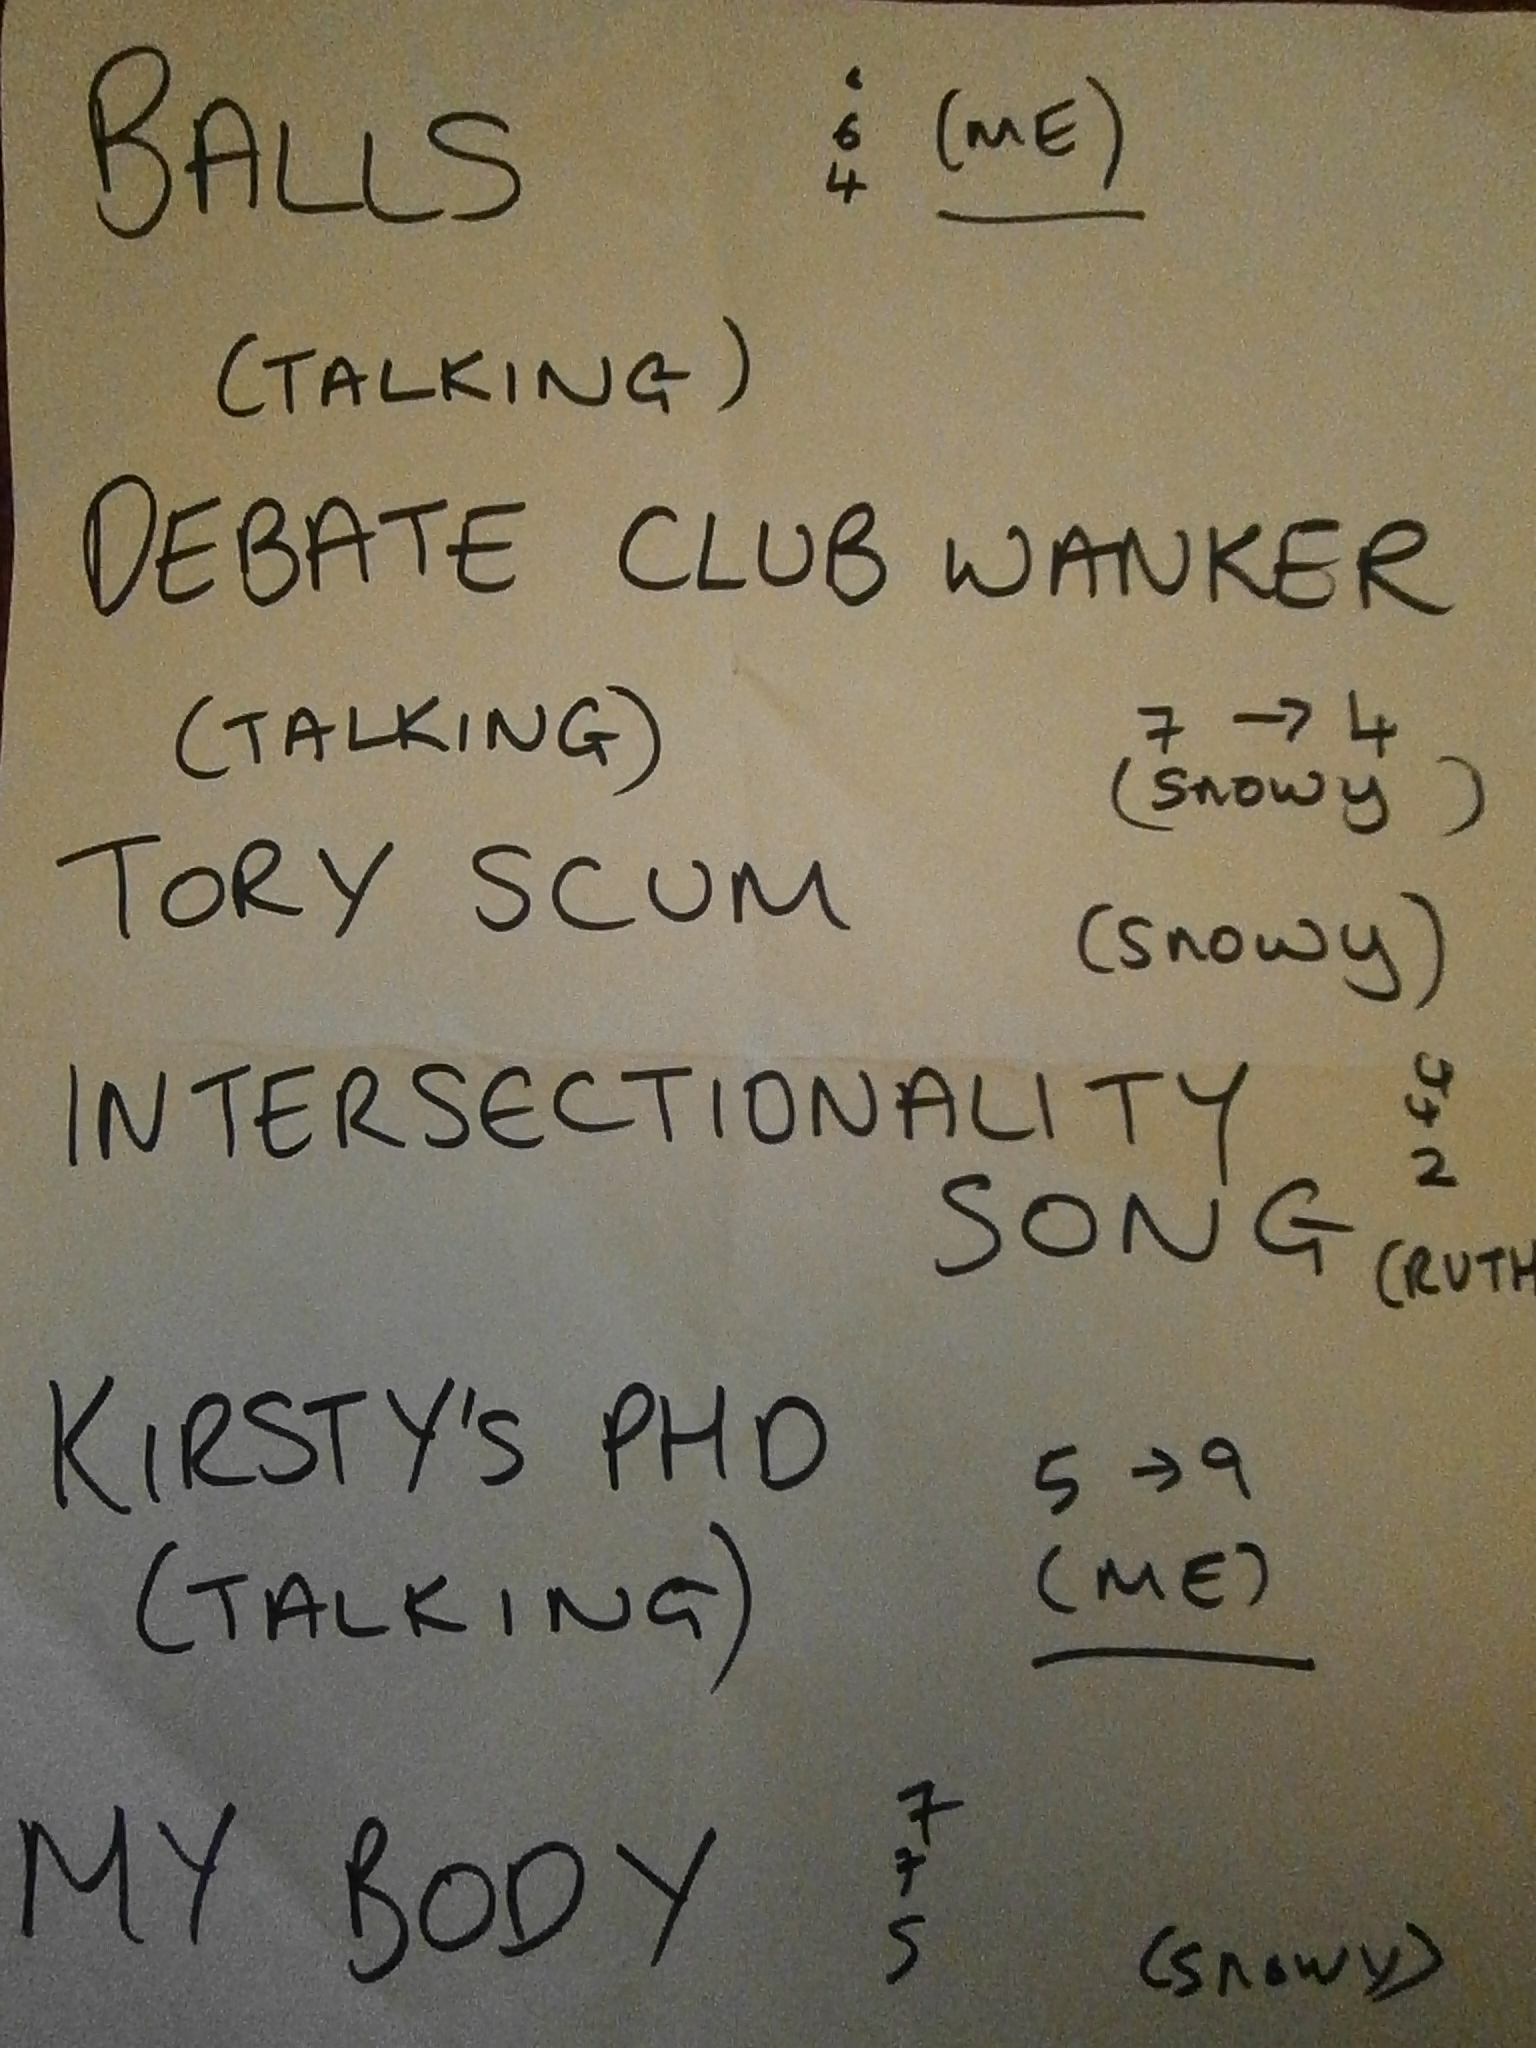 BALLS 6 4 (ME)
(TALKING)
DEBATE CLUB WANKER
(TALKING) 7 → 4
(Snowy)
TORY SCUM (Snowy)
INTERSECTIONALITY
SONG 4 2 (RUTH
KIRSTY'S PHD 5 → 9
(TALKING) (ME)
MY BODY 7 7 5 (Snowy)